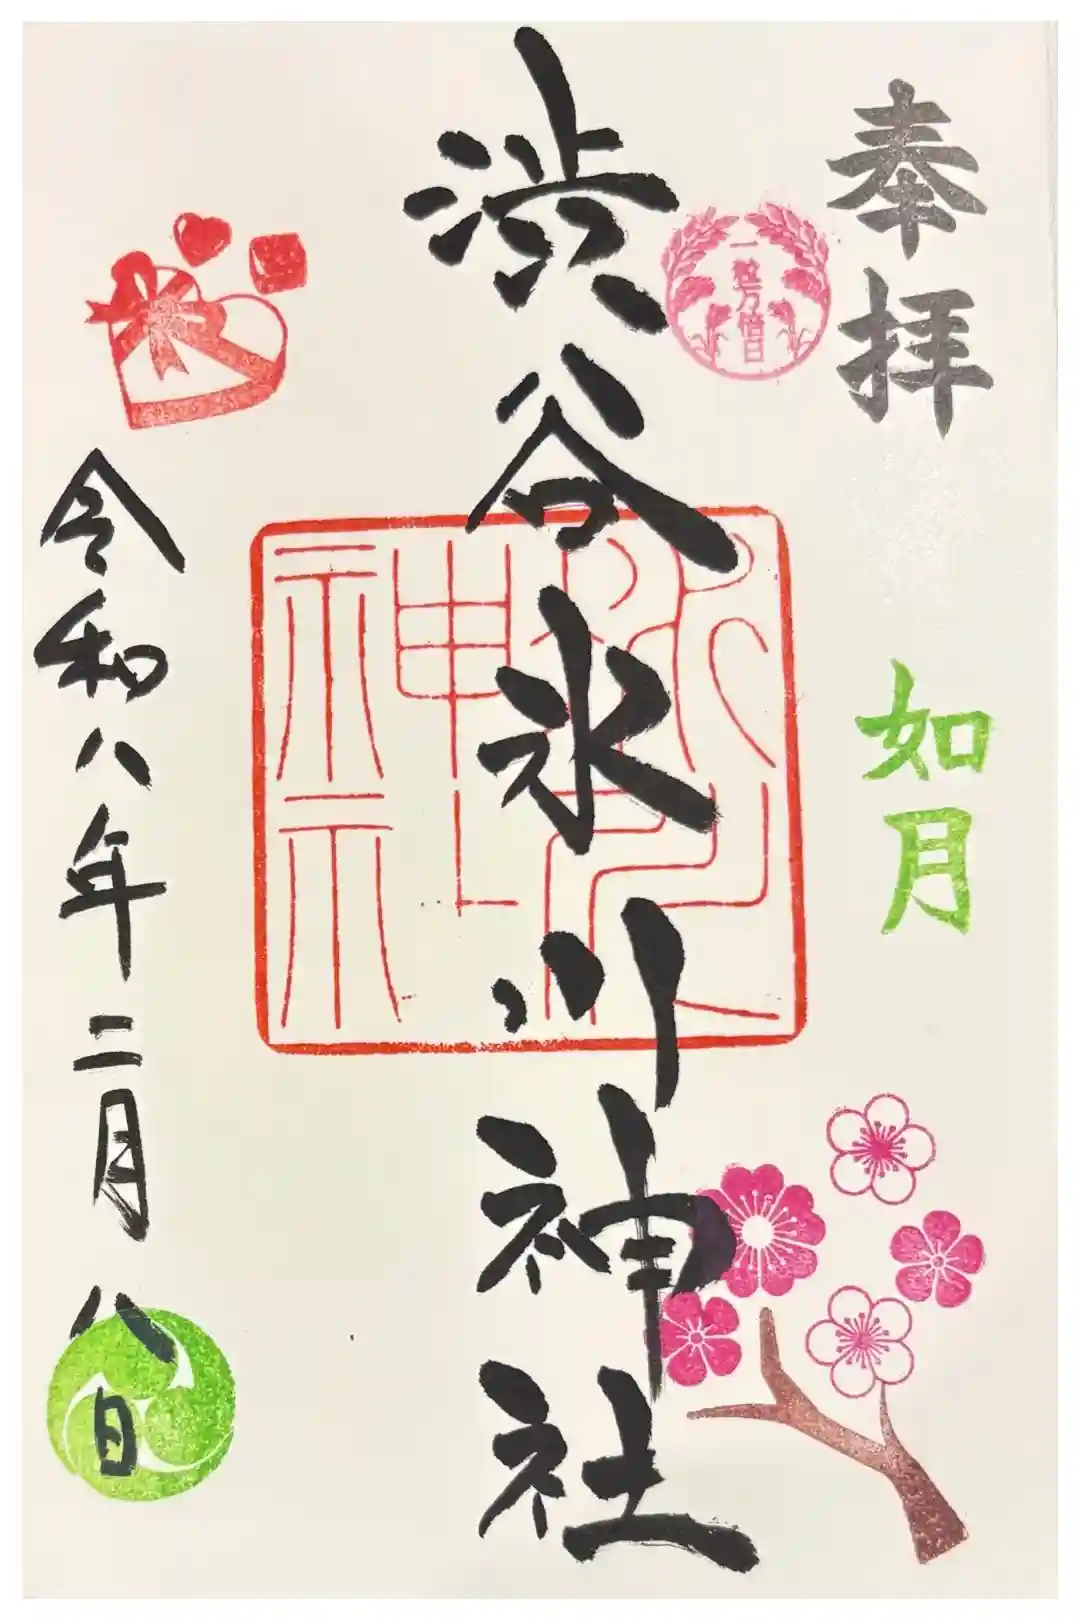 奉拝
一粒万倍日
如月
渋谷氷川神社
氷川神社
令和八年二月八日